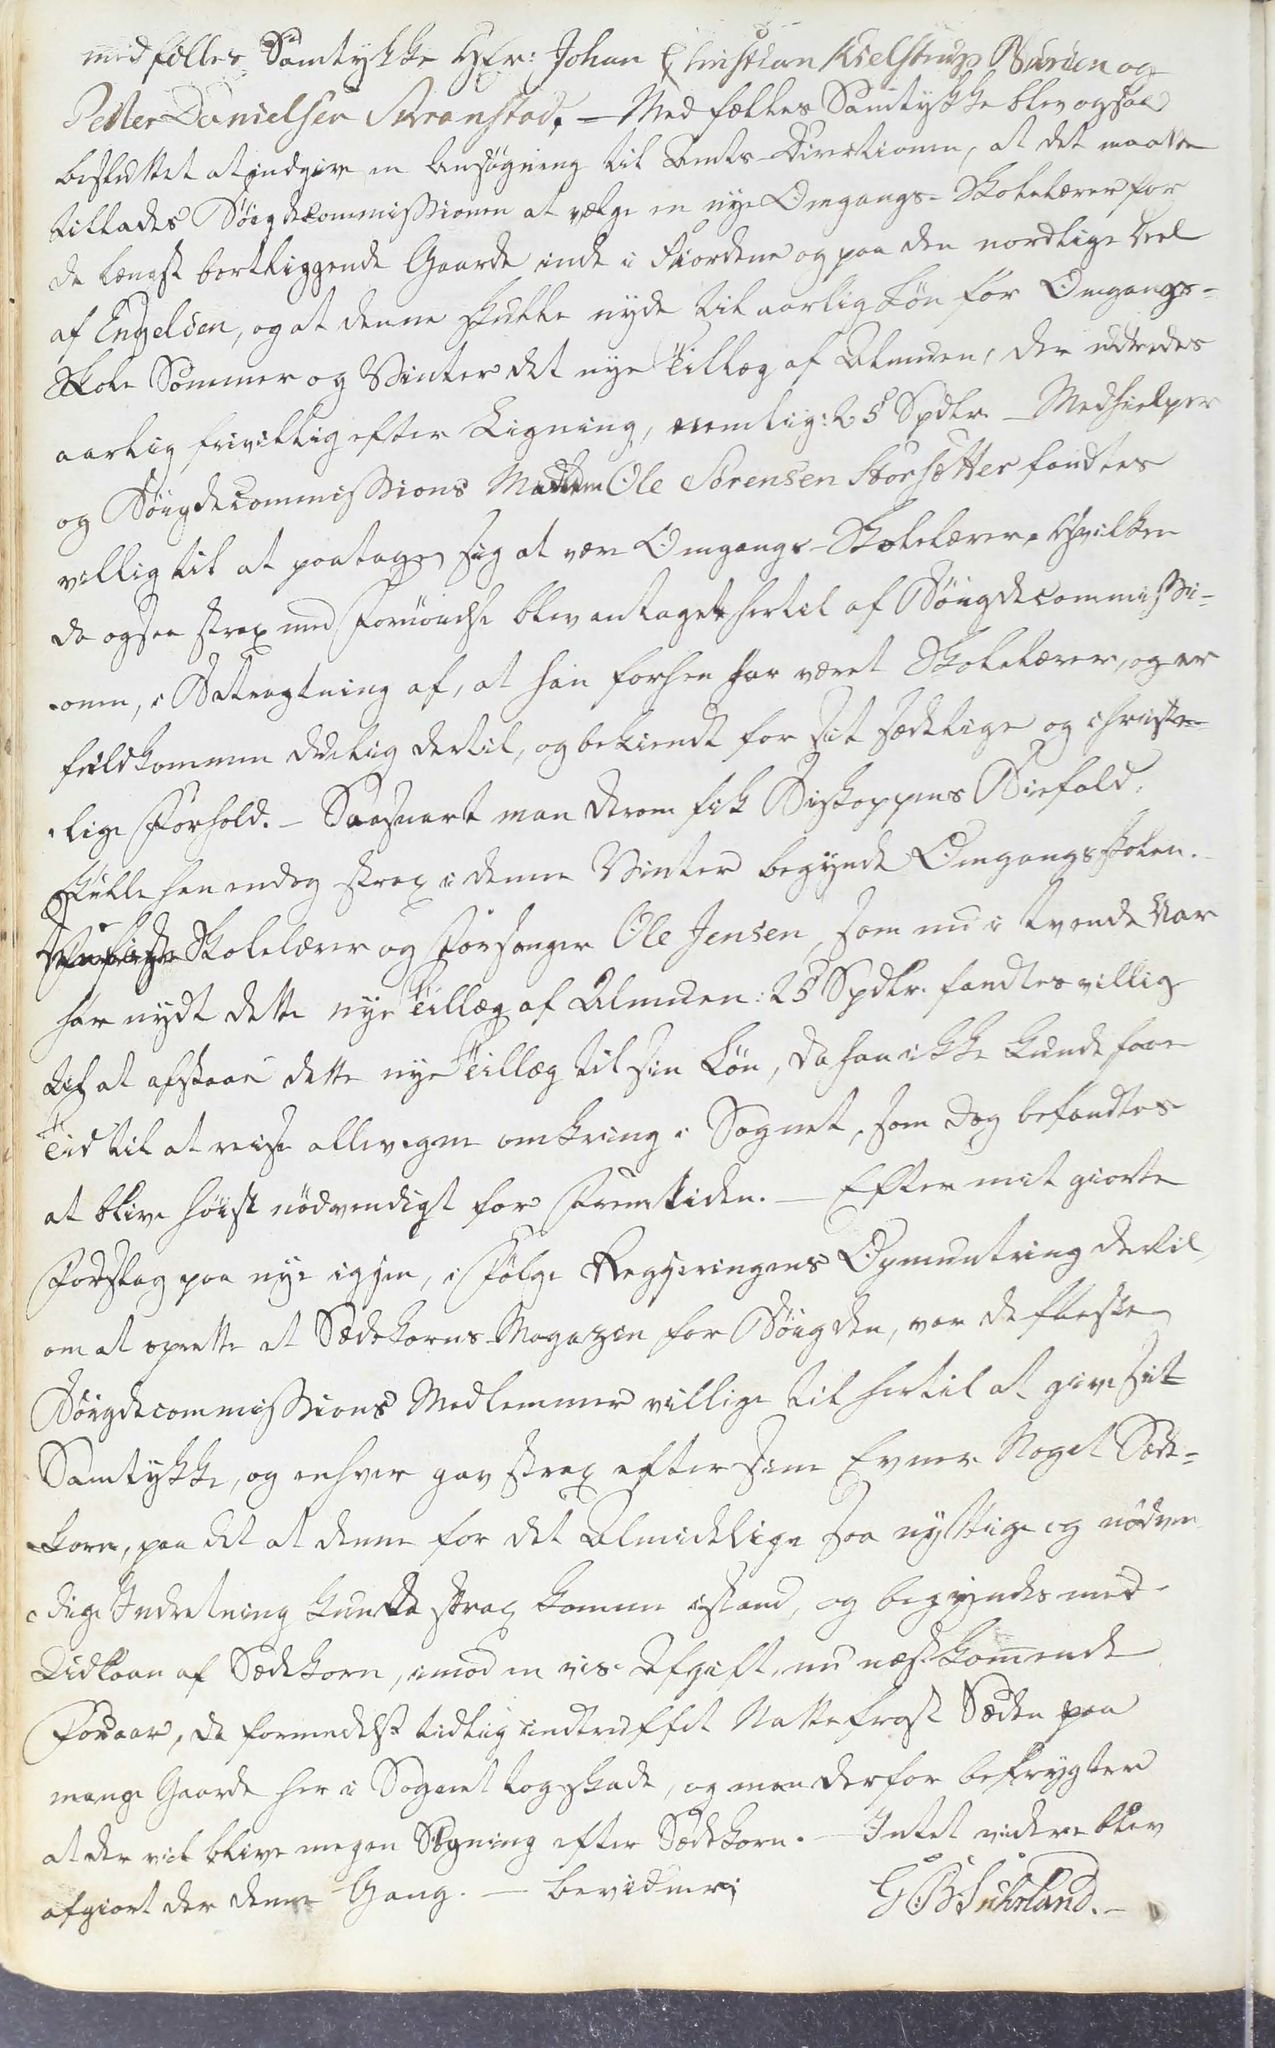 med fælles Samtykke Hr: Johan Christian Kielstrup Buréen og
Petter Danielsen Svranstad. – Med fælles Samtykke blev ogsaa
besluttet at indgive en Ansøgning til Amts-Directionen, at det maatte
tillades Böigdecommissionen at vælge en nye Omgangs-Skolelærer for
de længst bortliggende Gaarde inde i Fiordene og paa den nordlige Deel
af Engelöen, og at denne skulle nyde til aarlig Løn for Omgangs-
Skole Sommer og Vinter det nye Tillæg af Almuen, der udredes
aarlig frivillig efter Ligning, nemlig: 25 Spdlr. – Medhielper
og Böigdecommissions Medlem Ole Sörensen Storsötter fandtes
villig til at paatage sig at være Omgangs-Skolelærer, hvilken
da ogsaa strax med Fornöielse blev antaget hertil af Böigdecommissi-
onen, i Betragtning af, at han forhen har været Skolelærer, og er
fuldkommen duelig dertil, og bekiendt for sit sædelige og christe-
lige Forhold. – Saasnart man derom fik Biskoppens Biefald,
skulle han endog strax i denne Vinter begynde Omgangsskolen.
Skolelærer og Forsanger Ole Jensen, som nu i tvende Aar
har nydt dette nye Tillæg af Almuen: 25 Spdlr. fandtes villig
til at afstaae dette nye Tillæg til sin Løn, da han ikke kunde faae
Tid til at reise allevegne omkring i Sognet, som dog befandtes
at blive höist nödvendigt for Fremtiden. – Efter mit giorte
Forslag paa nye igjen, i Fölge Reggieringens Opmuntring dertil,
om at oprette et Sædekorns-Magazin for Böigden, var de fleste
Böigdecommissions Medlemmer villige til hertil at give sit
Samtykke, og enhver gav strax efter sine Evner Noget Sæde-
korn, paa det at denne for det Almindelige saa nyttige og nödven
dige Indretning kunde strax komme istand, og begyndes med
Udlaan af Sædekorn, imod en vis Afgift, nu næstkommende
Foraar, da formedelst tidlig indtruffet Nattefrost Sæden paa
mange Gaarde her i Sognet tog skade, og man derfor befrygter
at der vil blive megen Sögning efter Sædekorn. – Intet videre blev
afgiort der denne Gang. – bevidner; G. B. Suhrland. –